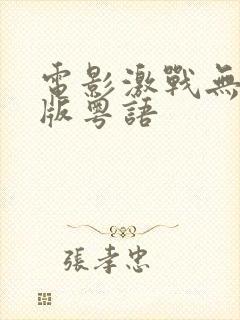 電影激戰無
版粵語
張孝忠